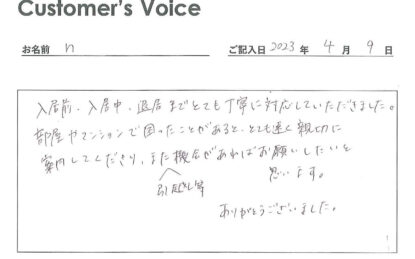 Customer's Voice
お名前 n ご記入日 2023 年 4 月 9 日
入居前、入居中、退居までとても丁寧に対応していただきました。
部屋やマンションで困ったことがあると、とても速く親切に
案内してくださり、また機会があればお願いしたいと
引越し等
思います。
ありがとうございました。